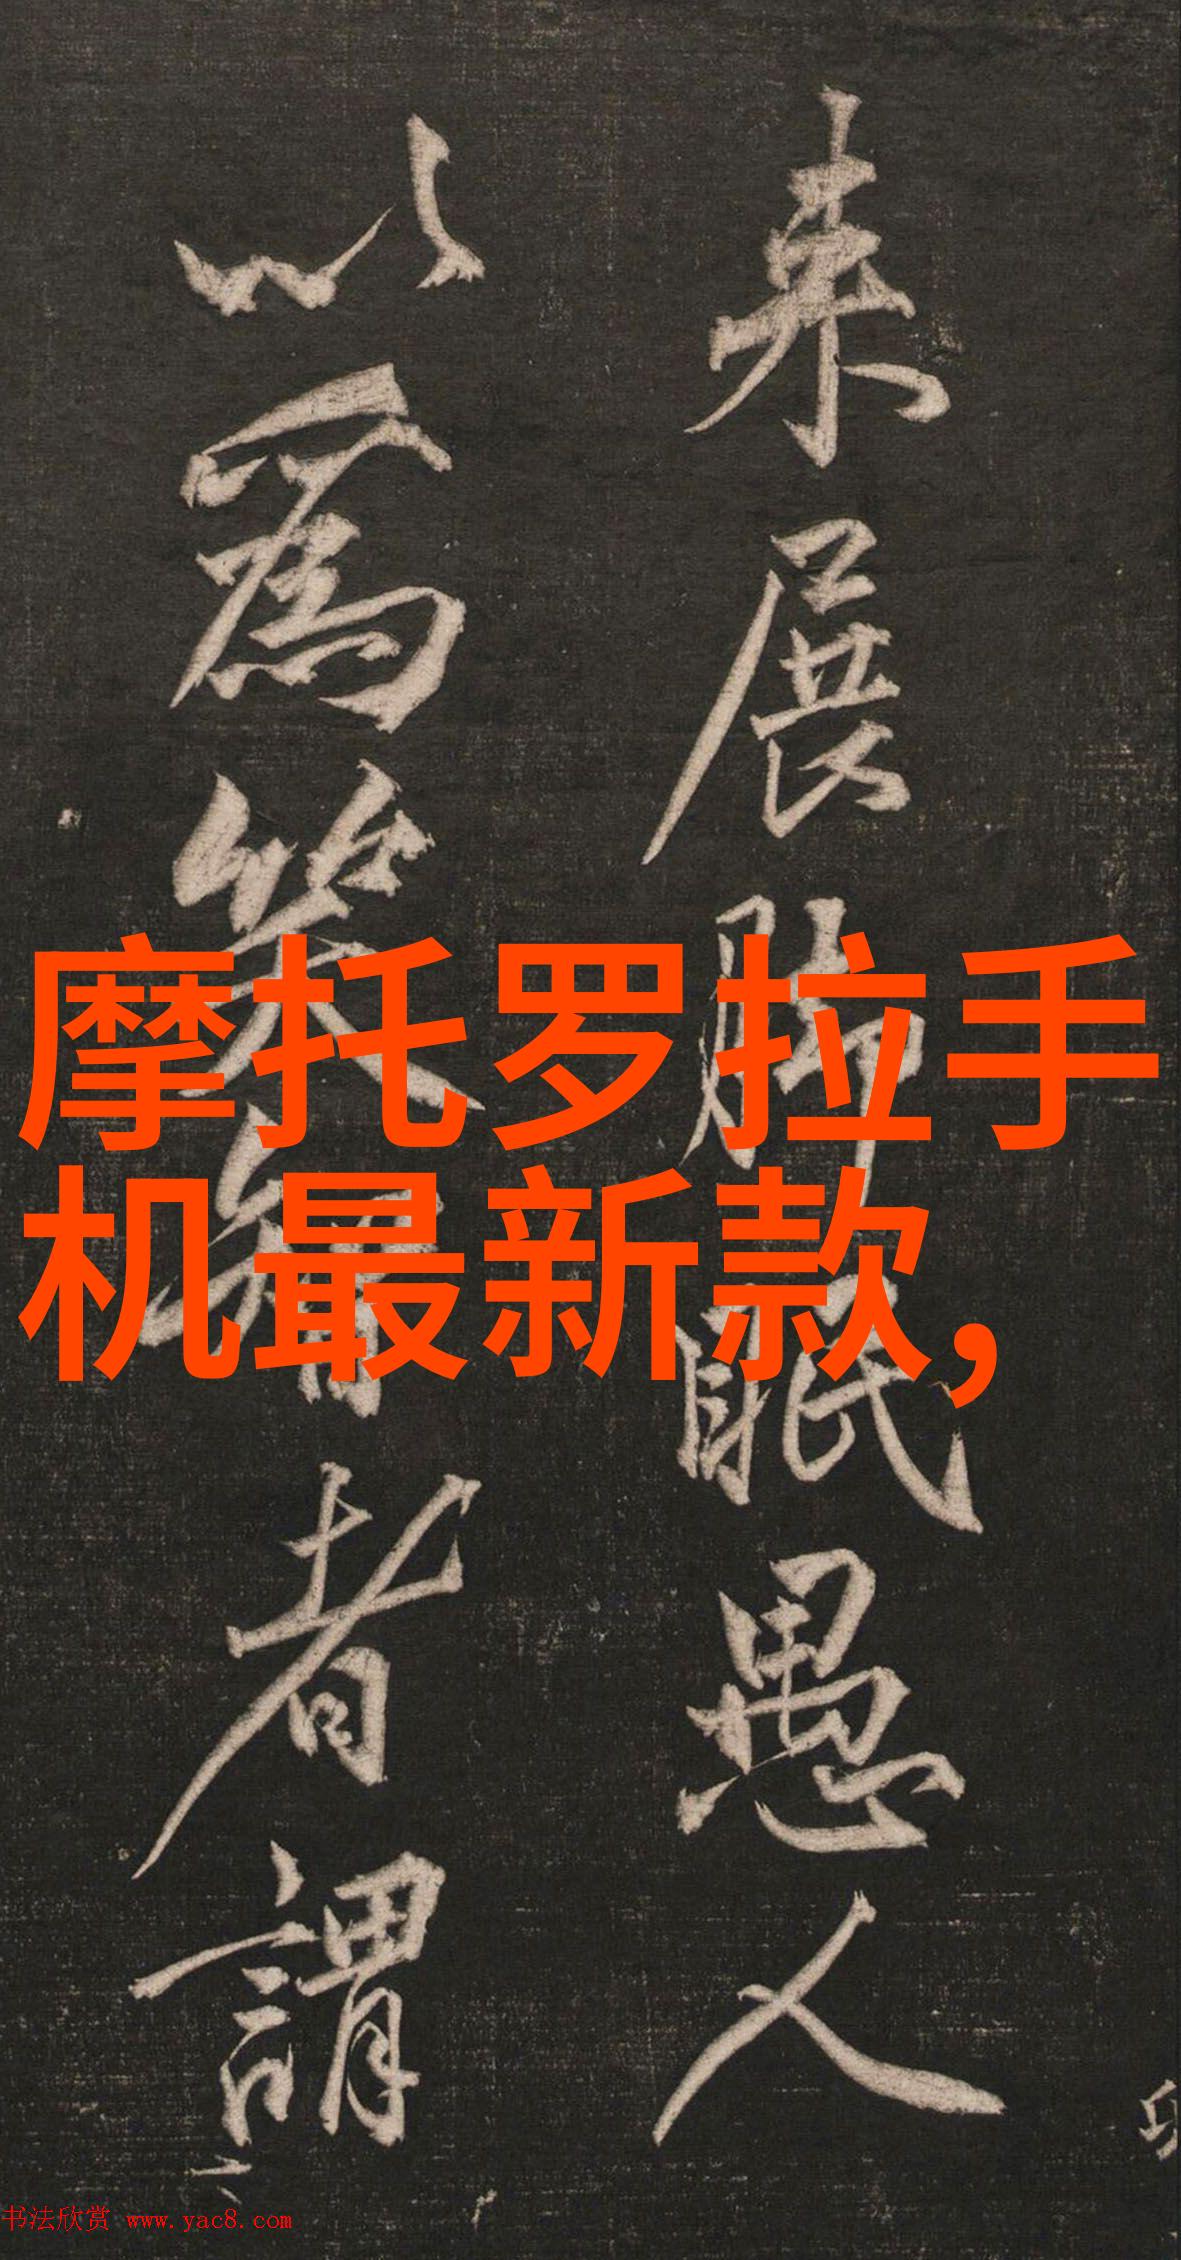 来展脚眠愚人
以為笑智者謂
摩托罗拉手
机最新款，
书法欣赏 www.yac8.com